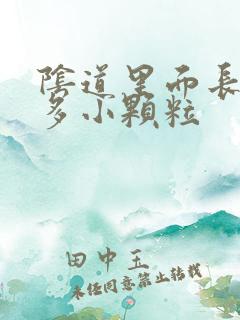 陰道里而長
多小顆粒
田中玉
未經同意禁止轉載